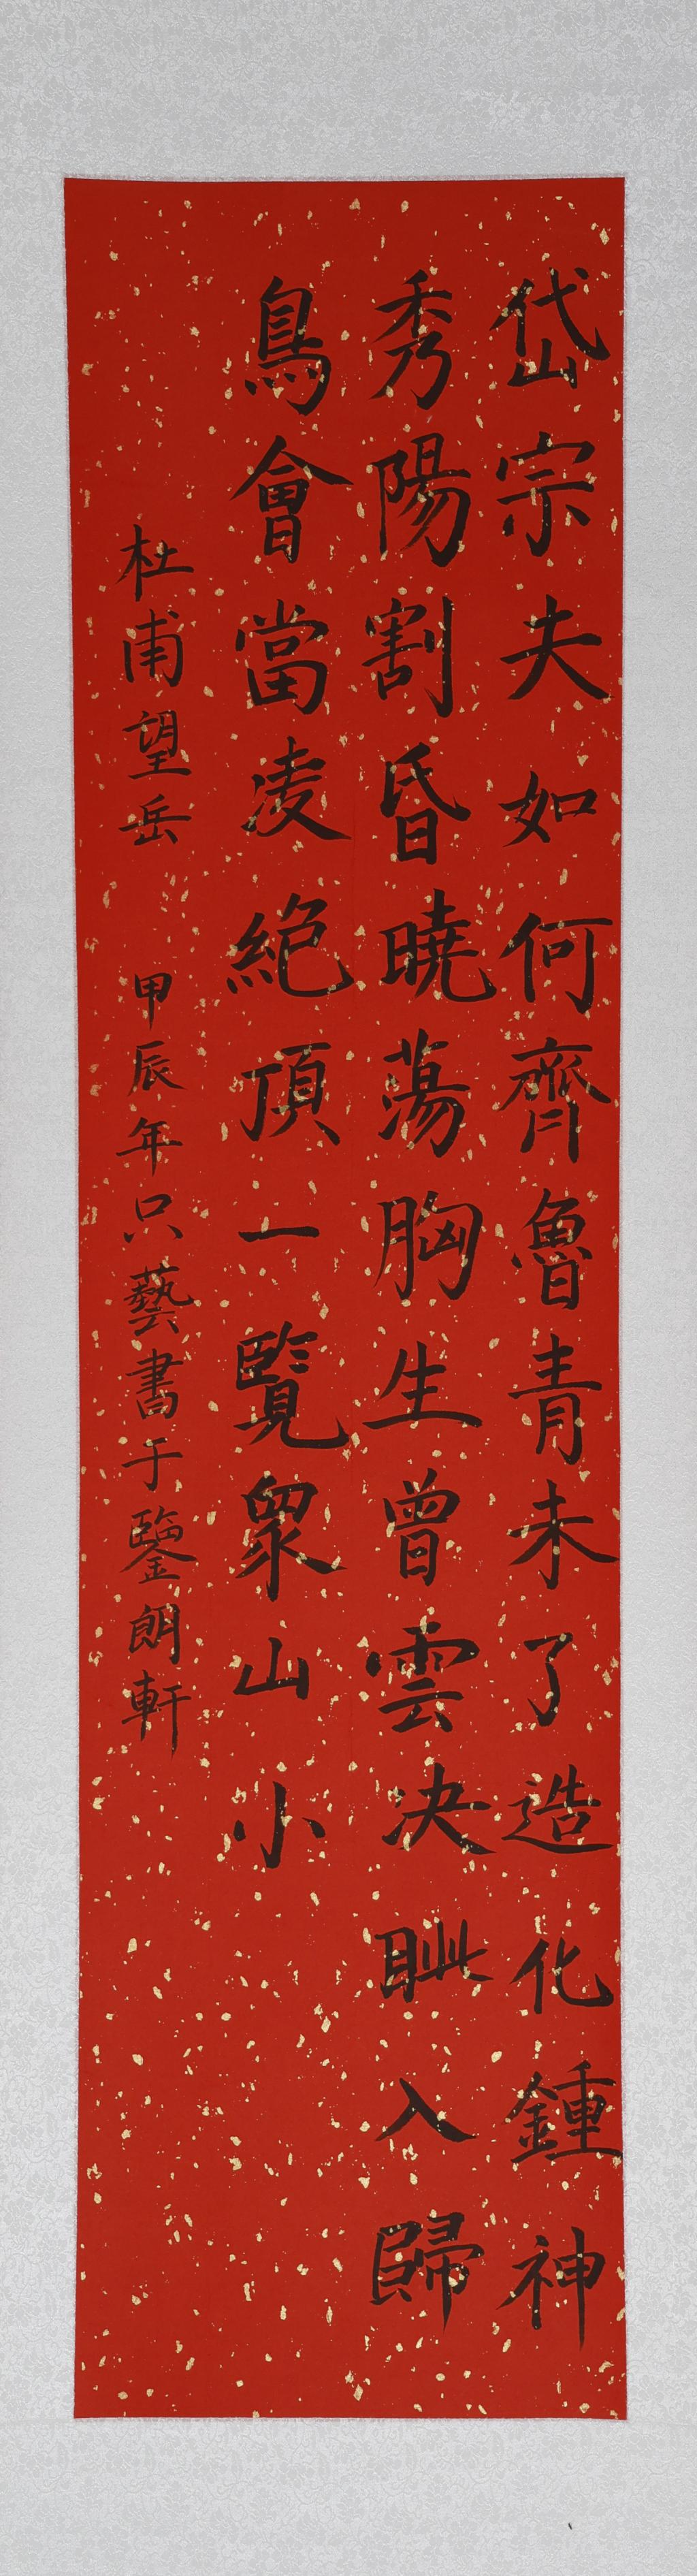 岱宗夫如何齊魯青未了造化鍾神
秀陽割昏曉蕩胸生曾雲決眦入歸
鳥會當凌絕頂一覽衆山小
杜甫望岳 甲辰年只藝書于鑒朗軒